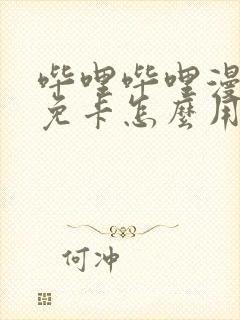 哔哩哔哩漫
免卡怎麼用
何冲